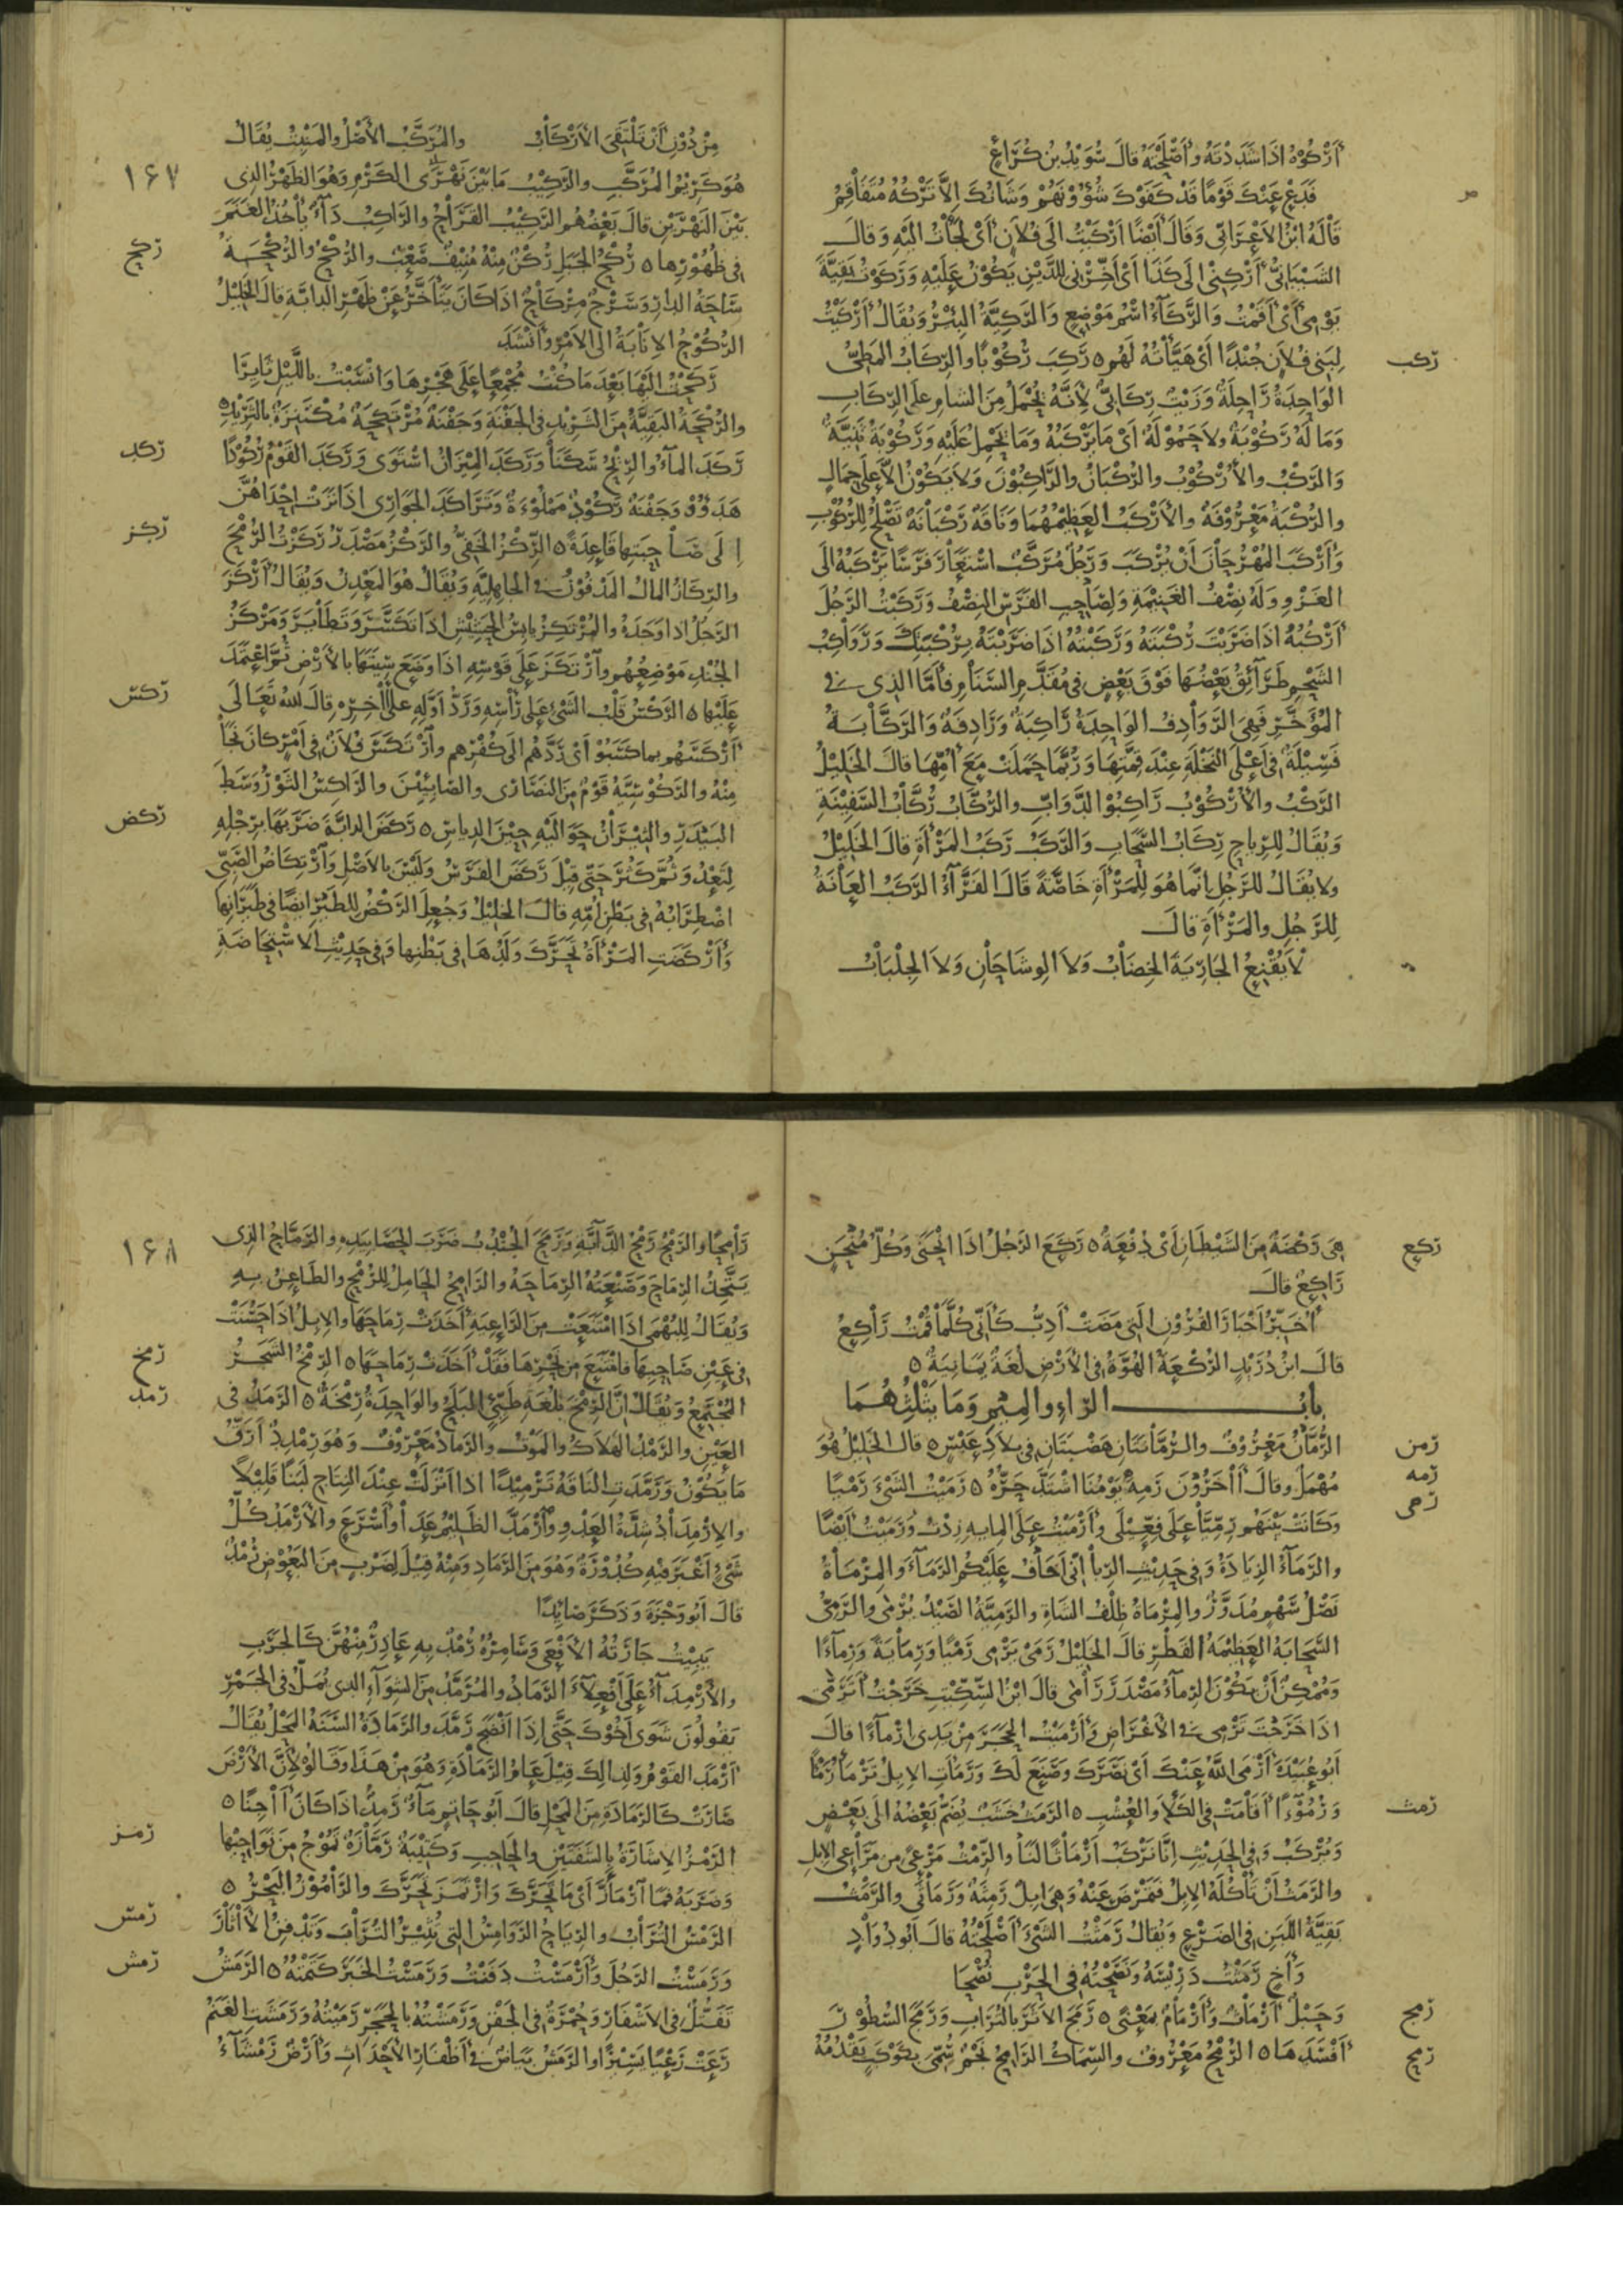 أَرْكُوهُ اذا شَدَدْتَهُ وأَصْلَحْتَهُ قال سُوَيْدُ بن كُرَاع
فَدَعْ عنك قَوْمًا قد كَفَوْكَ شُؤُونَهُمْ وَشَانُكَ الاّ تَرْكُهُ مُتَفَاقِمُ
قاله ابنُ الاَعْرَابِّى وقال أيضًا أَرْكَيْتُ الى فلان أى لجَأْتُ اليه وقال
الشيبانىُّ أَرْكِنِى الى كَذَا أى أَخِّرْنِى للدَّيْنِ يكُوْنُ عليه وركوتُ بَقِيَّةَ
يَوْمِى أى أَقَمْتُ والرَّكَآءُ اسْمُ مَوْضِعٍ والرَّكِيَّةُ البِئْرُ ويُقَالُ أَرْكَيْتُ
ركب
لِبَنِى فُلَانٍ جُنْدًا أى هَيَّأْتُهُ لَهُم ه رَكِبَ رُكُوْبًا والرِّكَابُ المَطِىُّ
الوَاحِدَةُ رَاحِلَةٌ وزَيْتٌ رِكَابِىٌّ لأنَّهُ يُحْمَلُ مِنَ الشامِ على الرِّكَابِ
وَمَا لَهُ رَكُوْبَةٌ ولاَ حَمُوْلَةٌ أى مَا يَرْكَبُهُ وَمَا يَحْمِلُ عَلَيْهِ وَرَكُوْبَةُ ثَنِيَّةٌ
والرَّكْبُ والأُرْكُوْبُ والرُّكْبَانُ والرَّاكِبُوْنَ ولاَ يَكُوْنُ الاَّ على جِمَالٍ
والرُّكْبَةُ مَعْرُوْفَةٌ والأَرْكَبُ العَظِيْمُهُمَا ونَاقَةٌ رَكْبَانَةٌ تَصْلُحُ للرُّكُوْبِ
وأَرْكَبَ المُهْرُ حَانَ أَنْ يُرْكَبَ ورَجُلٌ مُرَكَّبٌ اسْتَعَارَ فَرَسًا يَرْكَبُهُ الَى
الغَزْوِ ولَهُ نِصْفُ الغَنِيْمَةِ ولِصَاحِبِ الفَرَسِ النِصْفُ ورَكَبْتُ الرَّجُلَ
أَرْكُبُهُ اذَا ضَرَبْتَ رُكْبَتَهُ ورَكَبْتُهُ اذَا ضَرَبْتَهُ بِرُكْبَتِكَ ورَوَاكِبُ
الشَّحْمِ طَرَآئِقُ بَعْضُهَا فَوْقَ بَعْضٍ فى مُقَدَّمِ السَّنَامِ فأَمَّا الذى فى
المُؤَخَّرِ فَهِىَ الرَّوَادِفُ الوَاحِدَةُ رَاكِبَةٌ ورَادِفَةٌ والرَّكَّابَةُ
فَسِيْلَةٌ فى أَعْلَى النَّخْلَةِ عِنْدَ قِمَّتِهَا ورُبَّمَا حَمَلَتْ مَعَ أُمِّهَا قال الخَلِيْلُ
الرَّكْبُ والأُرْكُوْبُ رَاكِبُوْ الدَّوَابِّ والرُّكَّابُ رُكَّابُ السَّفِيْنَةِ
ويُقَالُ للرِّيَاحِ رِكَابُ السَّحَابِ والرَّكَبُ رَكَبُ المَرْأَةِ قال الخَلِيْلُ
ولا يُقَالُ للرَّجُلِ انَّمَا هُوَ للمَرْأَةِ خَاصَّةً قَالَ الفَرَّآءُ الرَّكَبُ العَانَةُ
لِلرَّجُلِ والمَرْأَةِ قال
لاَ يُقْنِعُ الجَارِيَةَ الخِضَابُ وَلاَ الوِشَاحَانِ وَلاَ الجِلْبَابُ
مِنْ دُوْنِ أَنْ تَلْتَقِىَ الأَرْكَابُ والمُرَكَّبُ الأَصْلُ والمَنْبِتُ يُقَالُ
١٦٧
هُوَ كَرِيْمُ المُرَكَّبِ والرَّكِيْبُ مَا بَيْنَ نَهْرَىِ الكَرْمِ وَهُوَ الظَهْرُ الذى
بَيْنَ النَهْرَيْنِ قال بَعْضُهُم الرَّكِيْبُ القَرَاحُ والرَّاكِبُ دَآءٌ يأْخُذُ الغَنَمَ
ركح
فى ظُهُوْرِها ه رُكْحُ الجَبَلِ رُكْنٌ مِنْهُ مُنِيْفٌ صَعْبٌ والرُّكْحُ والرُّكْحَةُ
سَاحَةُ الدارِ وسَرْجٌ مِرْكَاحٌ اذا كَانَ يَتَأَخَّرُ عَنْ ظَهْرِ الدابَّةِ قال الخليلُ
الرُّكُوْحُ الاِنَابَةُ الى الاَمْرِ وأَنْشَدَ
رَكَحْتُ الَيْهَا بَعْدَ مَا كُنْتُ مُجْمِعًا عَلَى هَجْرِهَا وَانْسَبْتُ باللَّيْلِ ثَايِرًا
والرُّكْحَةُ البَقِيَّةُ مِنَ الثَّرِيْدِ فى الجَفْنَةِ وجَفْنَةٌ مُرْتَكِحَةٌ مُكْتَنِزَةٌ بالثَّرِيْدِ ه
ركد
رَكَدَ المآءُ والرِّيْحُ سَكَنَا ورَكَدَ المِيْزَانُ اسْتَوَى ورَكَدَ القَوْمُ رُكُوْدًا
هَدَؤُوْا وجَفْنَةٌ رَكُوْدٌ مَمْلُوْءَةٌ وتَرَاكَدَ الجَوَارِى اذَا نَزَتْ إحْدَاهُنَّ
ركز
إِلَى صَاحِبَتِها قَاعِدَةً ه الرِّكْزُ الخَفِىُّ والرَّكْزُ مَصْدَرُ رَكَزْتُ الرُّمْحَ
والرِّكَازُ المالُ المَدْفُوْنُ فى الجاهِلِيَّةِ ويُقَالُ هُوَ المَعْدِنُ ويُقَالُ أَرْكَزَ
الرَجُلُ اذا وَجَدَهُ والمُرْتَكِزُ يابِسُ الحَشِيْشِ اذا تَكَسَّرَ وتَطَايَرَ ومَرْكَزُ
الجُنْدِ مَوْضِعُهُم وارْتَكَزَ عَلَى قَوْسِهِ اذَا وَضَعَ سِيَتَهَا بالأَرْضِ ثُمَّ اعْتَمَدَ
ركس
عَلَيْهَا ه الرَّكْسُ قَلْبُ الشَّىْءِ عَلَى رَأْسِهِ ورَدُّ أَوَّلِهِ على آخِرِهِ قال الله تَعَالَى
أَرْكَسَهُم بما كَسَبُوْا أى رَدَّهُم الَى كُفْرِهِم وارْتَكَسَ فُلاَنٌ فى أَمْرٍ كانَ نَجَا
مِنْهُ والرَّكُوْسِيَّةُ قَوْمٌ مِنَ النَصَارَى والصَابِئِيْنَ والرَّاكِسُ الثَوْرُ وسَطَ
ركض
البَيْدَرِ والثِيْرَانُ حَوَالَيْهِ حِيْنَ الدِياسِ ه رَكَضَ الدابَّةَ ضَرَبَهَا بِرِجْلِهِ
لِتَعْدُوَ ثُمَّ كَثُرَ حَتَّى قِيْلَ رَكَضَ الفَرَسُ ولَيْسَ بالاَصْلِ وارْتِكَاضُ الصَّبِىِّ
اضْطِرَابُهُ فى بَطْنِ أُمِّهِ قال الخليلُ وجُعِلَ الرَّكْضُ للطَيْرِ ايضًا فى طَيَرَانِها
وأَرْكَضَتِ المَرْأَةُ تَحَرَّكَ وَلَدُهَا فى بَطْنِها وفى حَدِيْثِ الاسْتِحَاضَةِ
ركع
هِىَ رَكْضَةٌ مِنَ الشَّيْطَانِ أَىْ دُفْعَةٌ ه رَكَعَ الرَجُلُ اذَا انْحَنَى وكُلُّ مُنْحَنٍ
رَاكِعٌ قال
أُخَبِّرُ أَخْبَارَ القُرُوْنِ الَتِى مَضَتْ أَدِبُّ كَأَنِّى كُلَّمَا قُمْتُ رَاكِعُ
قال ابنُ دُرَيْدٍ الرُّكْعَةُ الهُوَّةُ فى الأَرْضِ لُغَةٌ يَمَانِيَةٌ ه
بابُ الرّاءِ والمِيْمِ وَمَا يَثْلِثُهُمَا
رمن
الرُّمَّانُ مَعْرُوْفٌ والرُّمَّانَتَانِ هَضْبَتَانِ فى بِلاَدِ عَبْسٍ ه قال الخَلِيْلُ هُوَ
رمه
مُهْمَلٌ وقال آخَرُوْنَ رَمِهَ يَوْمُنَا اشْتَدَّ حَرُّهُ ه رَمَيْتُ الشَىْءَ رَمْيًا
رمى
وَكَانَتْ بَيْنَهُم رِمِّيَّا عَلَى فِعِّيْلَى وأَرْمَيْتُ عَلَى المِايةِ زِدْتُ ورَمَيْتُ أيضًا
والرَّمَآءُ الزِيَادَةُ وفى حَدِيْثِ الرِّبا انِّى أَخَافُ عَلَيْكُم الرَّمَآءَ والمِرْمَاةُ
نَصْلُ سَهْمٍ مُدَوَّرٌ والمِرْمَاةُ ظِلْفُ الشَاةِ والرَّمِيَّةُ الصَّيْدُ يُرْمَى والرَّمِىُّ
السَّحَابَةُ العَظِيْمَةُ القَطْرِ قال الخَلِيْلُ رَمَى يَرْمِى رَمْيًا ورِمَايَةً ورِمآءًا
ومُمْكِنٌ أَنْ يَكُوْنَ الرِمآءُ مَصْدَرَ رَامَى قال ابنُ السِّكِّيْتِ خَرَجْتُ أَتَرَمَّى
اذا خَرَجْتَ تَرْمِى فى الأَغْرَاضِ وأَرْمَيْتُ الحَجَرَ مِنْ يَدِى ارْمآءًا قال
أَبُو عُبَيْدَةَ أَرْمَى اللهُ عَنْكَ أَىْ نَصَرَكَ وصَنَعَ لَكَ ورَمَأَتِ الابِلُ تَرْمَأُ رَمْأً
رمث
ورُمُوْءًا أَقَامَتْ فى الكَلَأِ والعُشْبِ ه الرَّمَثُ خَشَبٌ يُضَمُّ بَعْضُهُ الَى بَعْضٍ
ويُرْكَبُ وفى الحَدِيْثِ إنَّا نَرْكَبُ أَرْمَاثًا لَنَا والرِّمْثُ مَرْعًى من مَرَاعِى الابِلِ
والرَّمَثُ أَنْ تَأْكُلَهُ الابِلُ فَتَمْرَضَ عَنْهُ وهِىَ ابِلٌ رَمِثَةٌ ورَمَاثَى والرَّمَثُ
بَقِيَّةُ اللَّبَنِ فى الضَرْعِ ويُقَالُ رَمَثْتُ الشَىْءَ أَصْلَحْتُهُ قال أَبُو دُوَادٍ
وأَخٍ رَمَثْتُ دَرِيْسَهُ ونَصَحْتُهُ فى الحَرْبِ نُصْحَا
رمج
وحَبْلٌ أَرْمَاثٌ وأَرْمَامٌ بمَعْنًى ه رَمَجَ الأَثَرَ بالتُرَابِ ورَمَجَ السُطُوْرَ
رمح
أَفْسَدَهَا ه الرُّمْحُ مَعْرُوفٌ والسِّمَاكُ الرَّامِحُ نَجْمٌ سُمِّىَ بِكَوْكَبٍ يَقْدُمُهُ
١٦٨
رَامِحًا والرَمْحُ رَمْحُ الدَّآبَّةِ ورَمَحَ الجُنْدُبُ ضَرَبَ الحَصَا بِيَدِهِ والرَمَّاحُ الذى
يَتَّخِذُ الرِمَاحَ وصَنْعَتُهُ الرِمَاحَةُ والرَّامِحُ الحَامِلُ للرُمْحِ والطَاعِنُ بِهِ
ويُقَالُ للبُهْمَى اذَا امْتَنَعَتْ مِنَ الرَاعِيَةِ أَخَذَتْ رِمَاحَهَا والابِلُ اذَا حَسُنَتْ
رمخ
فى عَيْنِ صَاحِبِهَا فامْتَنَعَ مِنْ نَحْرِهَا فَقَدْ أَخَذَتْ رِمَاحَهَا ه الرِّمْخُ الشَجَرُ
رمد
المُجْتَمِعُ ويُقَالُ انَّ الرِّمْخَ بلُغَةِ طَيِّئٍ البَلَحُ والوَاحِدَةُ رِمْخَةٌ ه الرَّمَدُ فى
العَيْنِ والرَّمْدُ الهَلاَكُ والمَوْتُ والرَّمَادُ مَعْرُوْفٌ وهُوَ رِمْدِدٌ أَرَقُّ
مَا يَكُوْنُ ورَمَّدَتِ النَاقَةُ تَرْمِيْدًا اذا أَنْزَلَتْ عِنْدَ النِتَاجِ لَبَنًا قَلِيْلاً
والارْمِدَادُ شِدَّةُ العَدْوِ وارْمَدَّ الظَلِيْمُ عَدَا وأَسْرَعَ والأَرْمَدُ كُلُّ
شَىْءٍ أَغْبَرَ فيه كُدُوْرَةٌ وهُوَ مِنَ الرَّمَادِ ومِنْهُ قِيْلَ لِضَرْبٍ مِنَ البَعُوْضِ رُمْدٌ
قال أَبُو وَجْزَةَ وذَكَرَ صَايِدًا
يَبِيْتُ جَارَتُهُ الأَفْعَى وَسَامِرُهُ رُمْدٌ بِهِ عَاذِرٌ مِنْهُنَّ كَالجَرَبِ
والأَرْمِدَآءُ عَلَى أَفْعِلآَءَ الرَّمَادُ والمُرَمَّدُ مِنَ الشِوَآءِ الذى يُمَلُّ فى الجَمْرِ
يَقُولُونَ شَوَى أَخُوْكَ حَتَّى إذَا أَنْضَجَ رَمَّدَ والرَّمَادَةُ السَّنَةُ المَحْلُ يُقَالُ
أَرْمَدَ القَوْمُ ولذلكَ قِيْلَ عَامُ الرَّمَادَةِ وهُوَ مِنْ هَذَا وقَالُوا لأَنَّ الأَرْضَ
صَارَتْ كَالرَّمَادِ مِنَ المَحْلِ قال أَبُو حَاتِمٍ مَآءٌ رَمِدٌ اذَا كَانَ آجِنًا ه
رمز
الرَّمْزُ الاِشَارَةُ بِالشَفَتَيْنِ والحَاجِبِ وكَتِيْبَةٌ رَمَّازَةٌ تَمُوْجُ مِنَ نَوَاحِيْهَا
وضَرَبَهُ فَمَا ارْمَأَزَّ أَىْ مَا تَحَرَّكَ وَارْتَمَزَ تَحَرَّكَ والرَّامُوْزُ البَحْرُ ه
رمس
الرَّمْسُ التُرَابُ والرِيَاحُ الرَّوَامِسُ التى تُثِيْرُ التُرَابَ وتَدْفِنُ الأَثَارَ
رمش
ورَمَسْتُ الرَجُلَ وأَرْمَسْتُ دَفَنْتُ ورَمَسْتُ الخَبَرَ كَتَمْتُهُ ه الرَمَشُ
تَفَتُّلٌ فى الأَشْفَارِ وحُمْرَةٌ فى الجَفْنِ ورَمَشْتُهُ بالحَجَرِ رَمَيْتُهُ ورَمَشَتِ الغَنَمُ
رَعَتْ رَعْيًا يَسِيْرًا والرَمَشُ بَيَاضٌ فى أَظْفَارِ الأَحْدَاثِ وأَرْضٌ رَمْشَآءُ